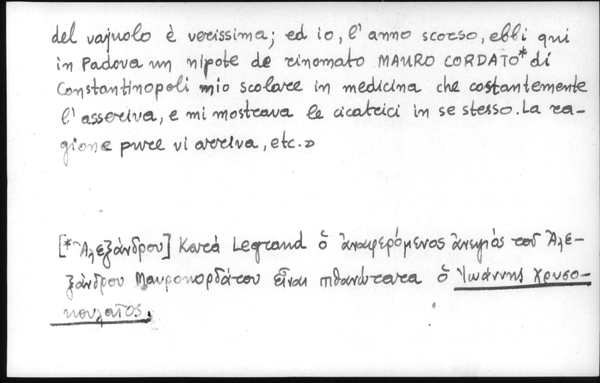 del vajuolo è verissima; ed io, l'anno scorso, ebbi qui
in Padova un nipote de rinomato MAURO CORDATO* di
Constantinopoli mio scolare in medicina che costantemente
l'asseriva, e mi mostrava le cicatrici in se stesso. La ra-
gione pure vi arriva, etc.»
[*Ἀλεξάνδρου] Κατά Legrand ὁ ἀναφερόμενος ἀνεψιός τοῦ Ἀλε-
ξάνδρου Μαυροκορδάτου εἶναι πιθανώτατα ὁ Ἰωάννης Χρυσο-
κουλαῖος.